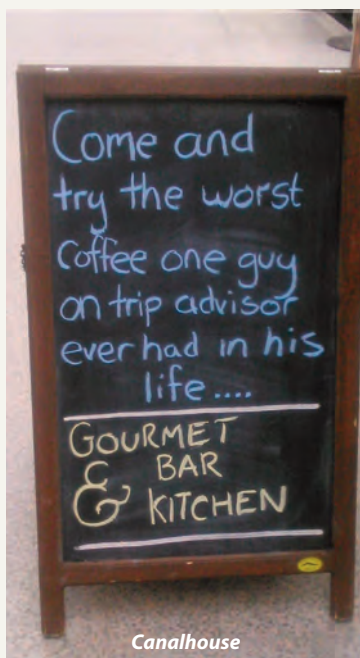 Come and
try the worst
Coffee one guy
on trip advisor
ever had in his
life....
GOURMET
& BAR
KITCHEN
Canalhouse